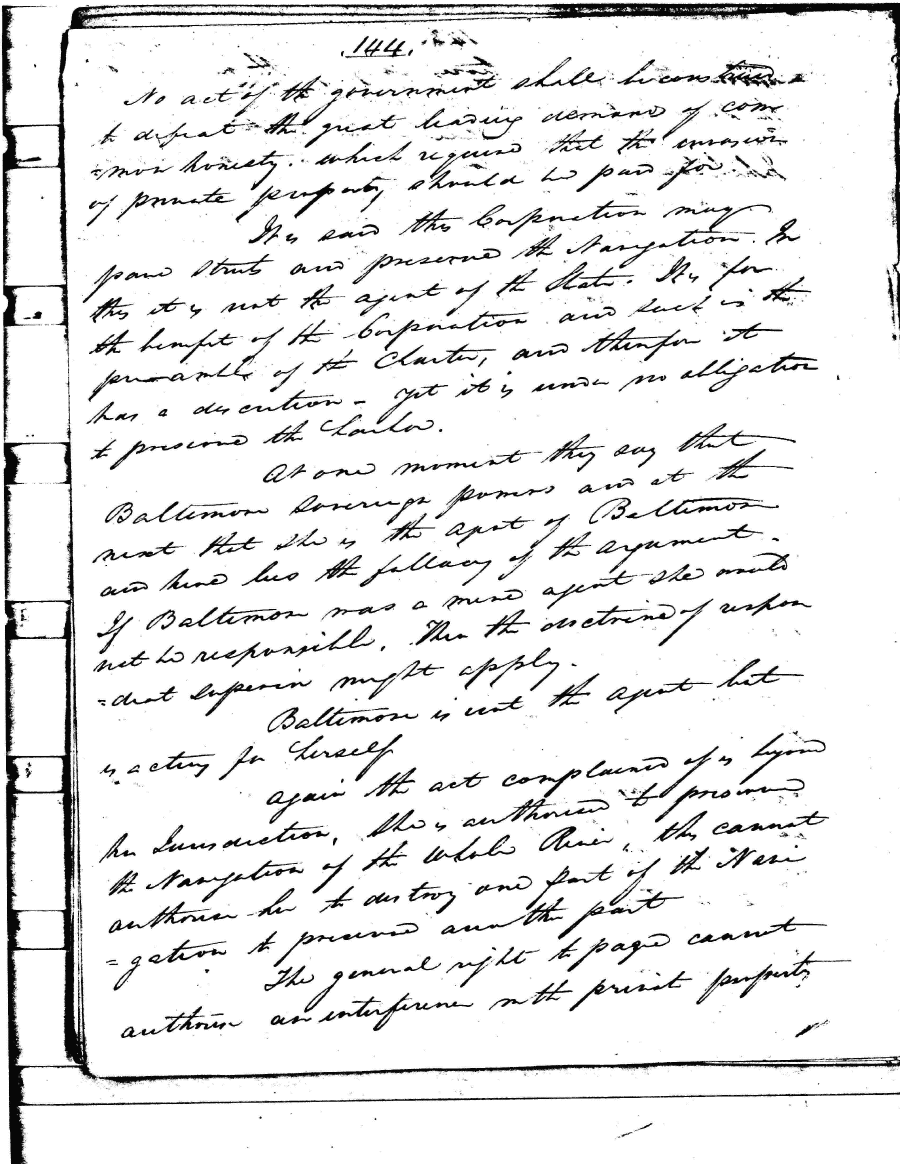 144.
No act of the government shall be construed
to defeat the great leading demand of com
=mon honesty. which requires that the invasion
of private property should be paid for.
It is said this Corporation may
pave streets and preserve the Navigation. In
this it is not the agent of the State. It is for
the benefit of the Corporation and such is the
preamble of the Charter, and therefore it
has a discretion - yet it is under no obligation
to preserve the harbor.
At one moment they say that
Baltimore sovereign powers and at the
next that she is the agent of Baltimore
and here lies the fallacy of the argument.
If Baltimore was a mere agent she would
not be responsible. Then the doctrine of respon
=deat superior might apply.
Baltimore is not the agent but
is acting for herself
Again the act complained of is beyond
her Jurisdiction. She is authorised to preserve
the Navigation of the whole River, this cannot
authorise her to destroy one part of the Navi
=gation to preserve another part
The general right to cannot
authorise an interference with private property